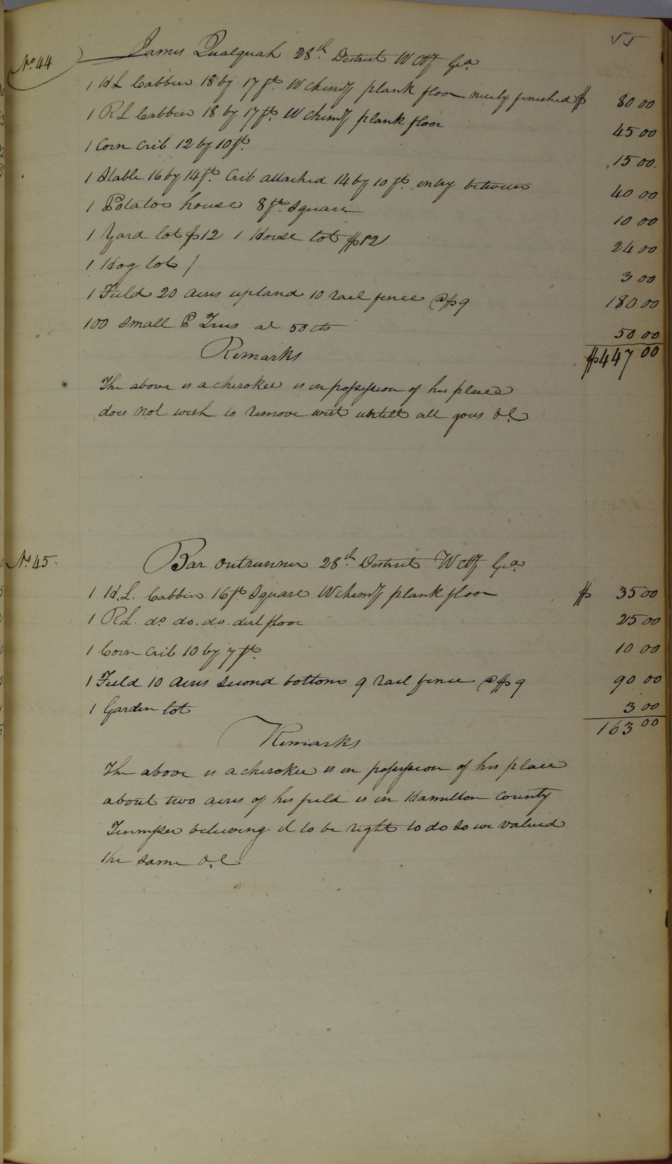 55
No. 44 James Qualquah 28th District W Cty Ga
1 H.L Cabbin 18 by 17 ft. W chimy plank floor nicely finished $ 80 00
1 R L Cabbin 18 by 17 ft. W chimy plank floor 45 00
1 Corn Crib 12 by 10 ft. 15 00
1 Stable 16 by 14 ft. Crib attached 14 by 10 ft. entry between 40 00
1 Potatoe house 8 ft. Square 10 00
1 Yard lot $12 1 House lot $12 24 00
1 Hog lot / 3 00
1 Field 20 acres upland 10 rail fence @ $9 180 00
100 Small P Trees at 50 cts 50 00
Remarks $447 00
The above is a cherokee is in possession of his place
does not wish to remove west untill all goes &c
No. 45 Bar outrunner 28th District W Cty Ga
1 H.L. Cabbin 16 ft Square W chimy plank floor $ 35 00
1 R L. do do. do. dirt floor 25 00
1 Corn Crib 10 by 7 ft. 10 00
1 Field 10 acres second bottom 9 rail fence @ $9 90 00
1 Garden lot 3 00
Remarks 163 00
The above is a cherokee is in possession of his place
about two acres of his field is in Hamilton County
believing it to be right to do so we valued
the same &c